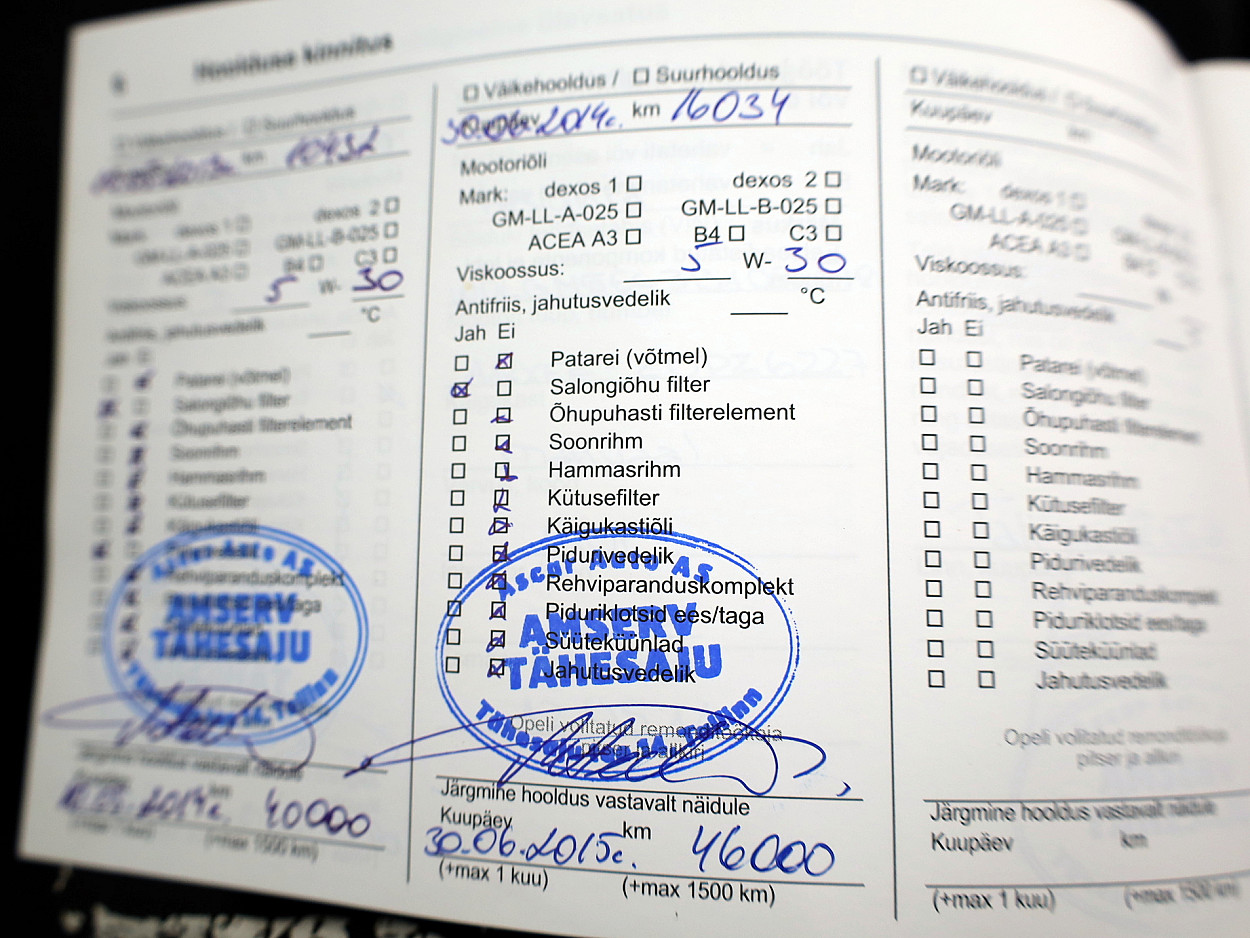 Hoolduse kinnitus
Väikehooldus / Suurhooldus
km 10432
Mootoriõli
Mark: dexos 1 dexos 2
GM-LL-A-025 GM-LL-B-025
ACEA A3 B4 C3
Viskoossus: 5 W- 30
Antifriis, jahutusvedelik °C
Jah Ei
Patarei (võtmel)
Salongiõhu filter
Õhupuhasti filterelement
Soonrihm
Hammasrihm
Kütusefilter
Käigukastiõli
Rehviparanduskomplekt
ees/taga
Ascar Auto AS
AMSERV
TÄHESAJU
Tallinn
Järgmine hooldus vastavalt näidule
2014c. km 40000
(+max 1 kuu) (+max 1500 km)
Väikehooldus / Suurhooldus
Kuupäev 30.06.2014c. km 16034
Mootoriõli
Mark: dexos 1 dexos 2
GM-LL-A-025 GM-LL-B-025
ACEA A3 B4 C3
Viskoossus: 5 W- 30
Antifriis, jahutusvedelik °C
Jah Ei
Patarei (võtmel)
Salongiõhu filter
Õhupuhasti filterelement
Soonrihm
Hammasrihm
Kütusefilter
Käigukastiõli
Pidurivedelik
Rehviparanduskomplekt
Piduriklotsid ees/taga
Süüteküünlad
Jahutusvedelik
Ascar Auto AS
AMSERV
TÄHESAJU
Tallinn
Opeli volitatud remonditöökoja
pitser ja allkiri
Järgmine hooldus vastavalt näidule
Kuupäev km
30.06.2015c. 46000
(+max 1 kuu) (+max 1500 km)
Väikehooldus / Suurhooldus
Kuupäev km
Mootoriõli
Mark: dexos 1
GM-LL-A-025
ACEA A3
Viskoossus:
Antifriis, jahutusvedelik
Jah Ei
Patarei (võtmel)
Salongiõhu filter
Õhupuhasti filterelement
Soonrihm
Hammasrihm
Kütusefilter
Käigukastiõli
Pidurivedelik
Rehviparanduskomplekt
Piduriklotsid ees/taga
Süüteküünlad
Jahutusvedelik
Opeli volitatud remonditöökoja
pitser ja allkiri
Järgmine hooldus vastavalt näidule
Kuupäev km
(+max 1 kuu) (+max 1500 km)